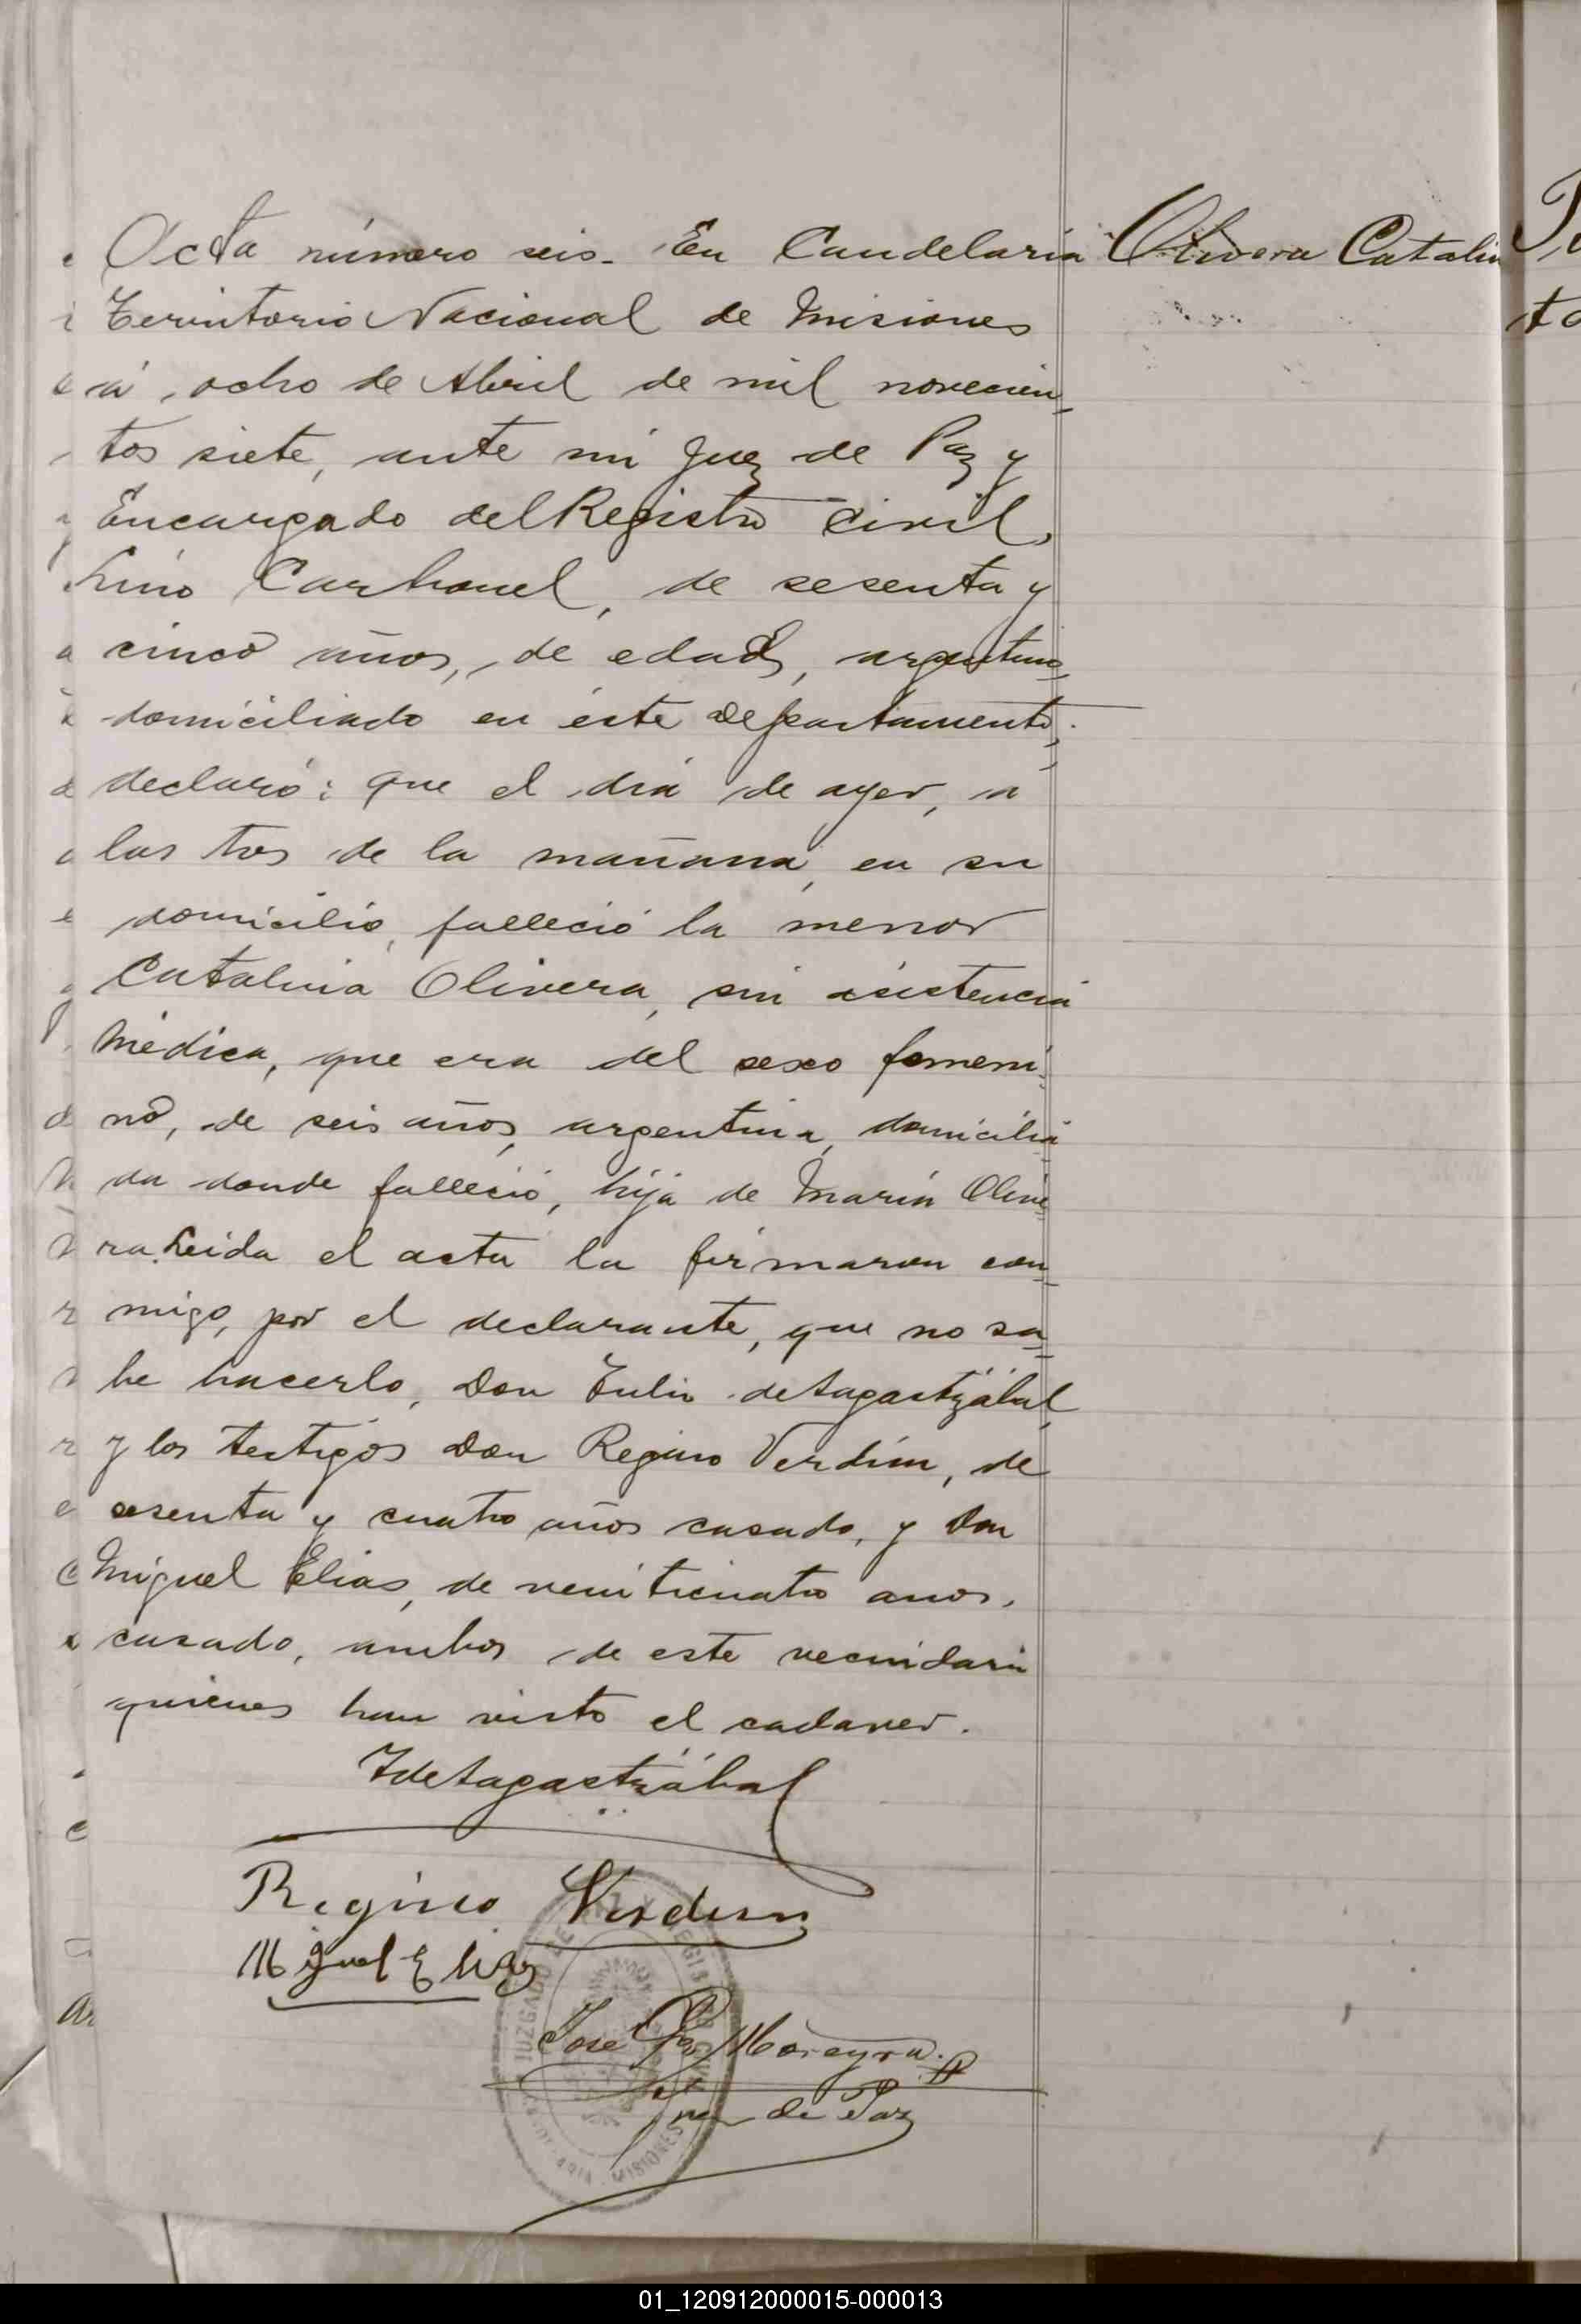 Acta número seis. En Candelaria
Olivera Catalin
Territorio Nacional de Misiones
á ocho de Abril de mil novecien-
tos siete, ante mi Juez de Paz y
Encargado del Registro Civil,
Lino Carbonel, de sesenta y
cinco años, de edad, argentino,
domiciliado en éste departamento,
declaró: que el dia de ayer, a
las tres de la mañana, en su
domicilio, falleció la menor
Catalina Olivera, sin asistencia
médica, que era del sexo femeni-
no, de seis años, argentina, domicilia-
da donde falleció, hija de Maria Olive-
ra. Leida el acta la firmaron con-
migo, por el declarante, que no sa-
be hacerlo, Don Julio de Sagastizábal,
y los testigos Don Regino Verdún, de
sesenta y cuatro años casado, y Don
Miguel Elias, de veinticuatro anos,
casado, ambos de este vecindario
quienes han visto el cadaver.
J de Sagastizábal
Regino Verdun
Miguel Elias
Jose Moreyra
Juez de Paz
JUZGADO DE
MISIONES
01_120912000015-000013